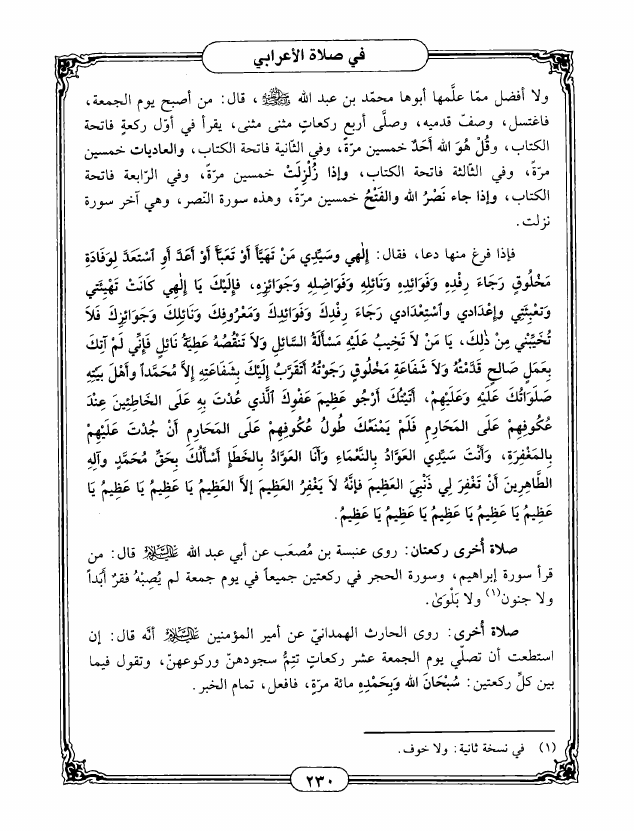 في صلاة الأعرابي
ولا أفضل ممّا علَّمها أبوها محمّد بن عبد الله ﷺ، قال: من أصبح يوم الجمعة،
فاغتسل، وصفّ قدميه، وصلَّى أربع ركعاتٍ مثنى مثنى، يقرأ في أوّل ركعةٍ فاتحة
الكتاب، وقُلْ هُوَ الله أَحَدٌ خمسين مرّةً، وفي الثّانية فاتحة الكتاب، والعاديات خمسين
مرّةً، وفي الثّالثة فاتحة الكتاب، وإذا زُلْزِلَتْ خمسين مرّةً، وفي الرّابعة فاتحة
الكتاب، وإذا جاء نَصْرُ الله والفَتْحُ خمسين مرّةً، وهذه سورة النّصر، وهي آخر سورة
نزلت.
فإذا فرغ منها دعا، فقال: إِلٰهي وسَيِّدي مَنْ تَهَيَّأَ أَوْ تَعَبَّأَ أَوْ أَعَدَّ أَوِ ٱسْتَعَدَّ لِوَفَادَةِ
مَخْلُوقٍ رَجَاءَ رِفْدِهِ وَفَوَائِدِهِ وَنَائِلِهِ وَفَوَاضِلِهِ وَجَوَائِزِهِ، فَإِلَيْكَ يَا إِلٰهِي كَانَتْ تَهْيِئَتي
وَتَعْبِئَتِي وإِعْدَادي وٱسْتِعْدَادي رَجَاءَ رِفْدِكَ وَفَوَائِدِكَ وَمَعْرُوفِكَ وَنَائِلِكَ وَجَوَائِزِكَ فَلاَ
تُخَيِّبْني مِنْ ذٰلِكَ، يَا مَنْ لاَ تَخِيبُ عَلَيْهِ مَسْأَلَةُ السَّائِلِ وَلاَ تَنْقُصُهُ عَطِيَّةُ نَائِلٍ فَإِنِّي لَمْ آتِكَ
بِعَمَلٍ صَالِحٍ قَدَّمْتُهُ وَلاَ شَفَاعَةِ مَخْلُوقٍ رَجَوْتُهُ أَتَقَرَّبُ إِلَيْكَ بِشَفَاعَتِهِ إِلاَّ مُحَمَّداً وأَهْلَ بَيْتِهِ
صَلَوَاتُكَ عَلَيْهِ وَعَلَيْهِمْ، أَتَيْتُكَ أَرْجُو عَظِيمَ عَفْوِكَ الَّذي عُدْتَ بِهِ عَلَى الخَاطِئِينَ عِنْدَ
عُكُوفِهِمْ عَلَى المَحَارِمِ فَلَمْ يَمْنَعْكَ طُولُ عُكُوفِهِمْ عَلَى المَحَارِمِ أَنْ جُدْتَ عَلَيْهِمْ
بِالمَغْفِرَةِ، وَأَنْتَ سَيِّدِي العَوَّادُ بِالنَّعْمَاءِ وَأَنَا العَوَّادُ بِالخَطَإِ أَسْأَلُكَ بِحَقِّ مُحَمَّدٍ وآلِهِ
الطَّاهِرِينَ أَنْ تَغْفِرَ لِي ذَنْبِيَ العَظِيمَ فَإِنَّهُ لاَ يَغْفِرُ العَظِيمَ إِلاَّ العَظِيمُ يَا عَظِيمُ يَا عَظِيمُ يَا
عَظِيمُ يَا عَظِيمُ يَا عَظِيمُ يَا عَظِيمُ يَا عَظِيمُ.
صلاة أُخرى ركعتان: روى عنبسة بن مُصعَب عن أبي عبد الله عَلَيْهِ السَّلَام قال: من
قرأ سورة إبراهيم، وسورة الحجر في ركعتين جميعاً في يوم جمعة لم يُصِبْهُ فقرٌ أبَداً
ولا جنون(١) ولا بَلْوَىٰ.
صلاة أُخرى: روى الحارث الهمدانيّ عن أمير المؤمنين عَلَيْهِ السَّلَام أنَّه قال: إن
استطعت أن تصلّي يوم الجمعة عشر ركعاتٍ تتِمُّ سجودهنّ وركوعهنّ، وتقول فيما
بين كلِّ ركعتين: سُبْحَانَ الله وَبِحَمْدِهِ مائة مرّةٍ، فافعل، تمام الخبر.
(١) في نسخة ثانية: ولا خوف.
٢٣٠